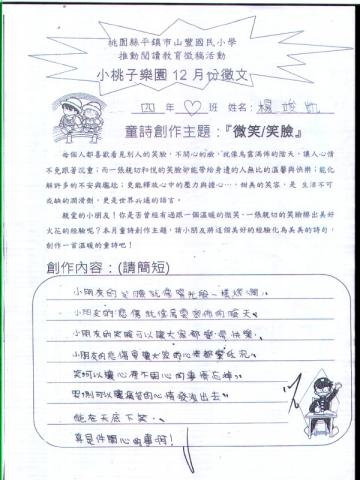 桃園縣平鎮市山豐國民小學
推動閱讀教育徵稿活動
小桃子樂園12月份徵文
四年♡班 姓名:楊
童詩創作主題:『微笑/笑臉』
每個人都喜歡看見別人的笑臉,不開心的臉,就像烏雲滿佈的陰天,讓人心情
不免跟著沉重;而一張親切和悅的笑臉卻能帶給身邊的人無比的溫馨與快樂;能化
解許多的不安與尷尬;更能釋放心中的壓力與擔心…,甜美的笑容,是生活不可
或缺的潤滑劑,更是世界共通的語言。
親愛的小朋友!你是否曾經有過跟一個溫暖的微笑、一張親切的笑臉擦出美好
火花的經驗呢?本月童詩創作主題,請小朋友將這個美好的經驗化為美美的詩句,
創作一首溫暖的童詩吧!
創作內容:(請簡短)
小朋友的笑臉就像陽光般一樣燦爛,
小朋友的悲傷就像烏雲密佈的陰天。
小朋友的笑臉可以讓大家都變得快樂,
小朋友的悲傷會讓大家的心情都變低沉。
笑可以讓心裡不開心的事情忘掉,
哭則可以讓痛苦的心情發洩出去。
能在天底下笑,
真是件開心的事啊!